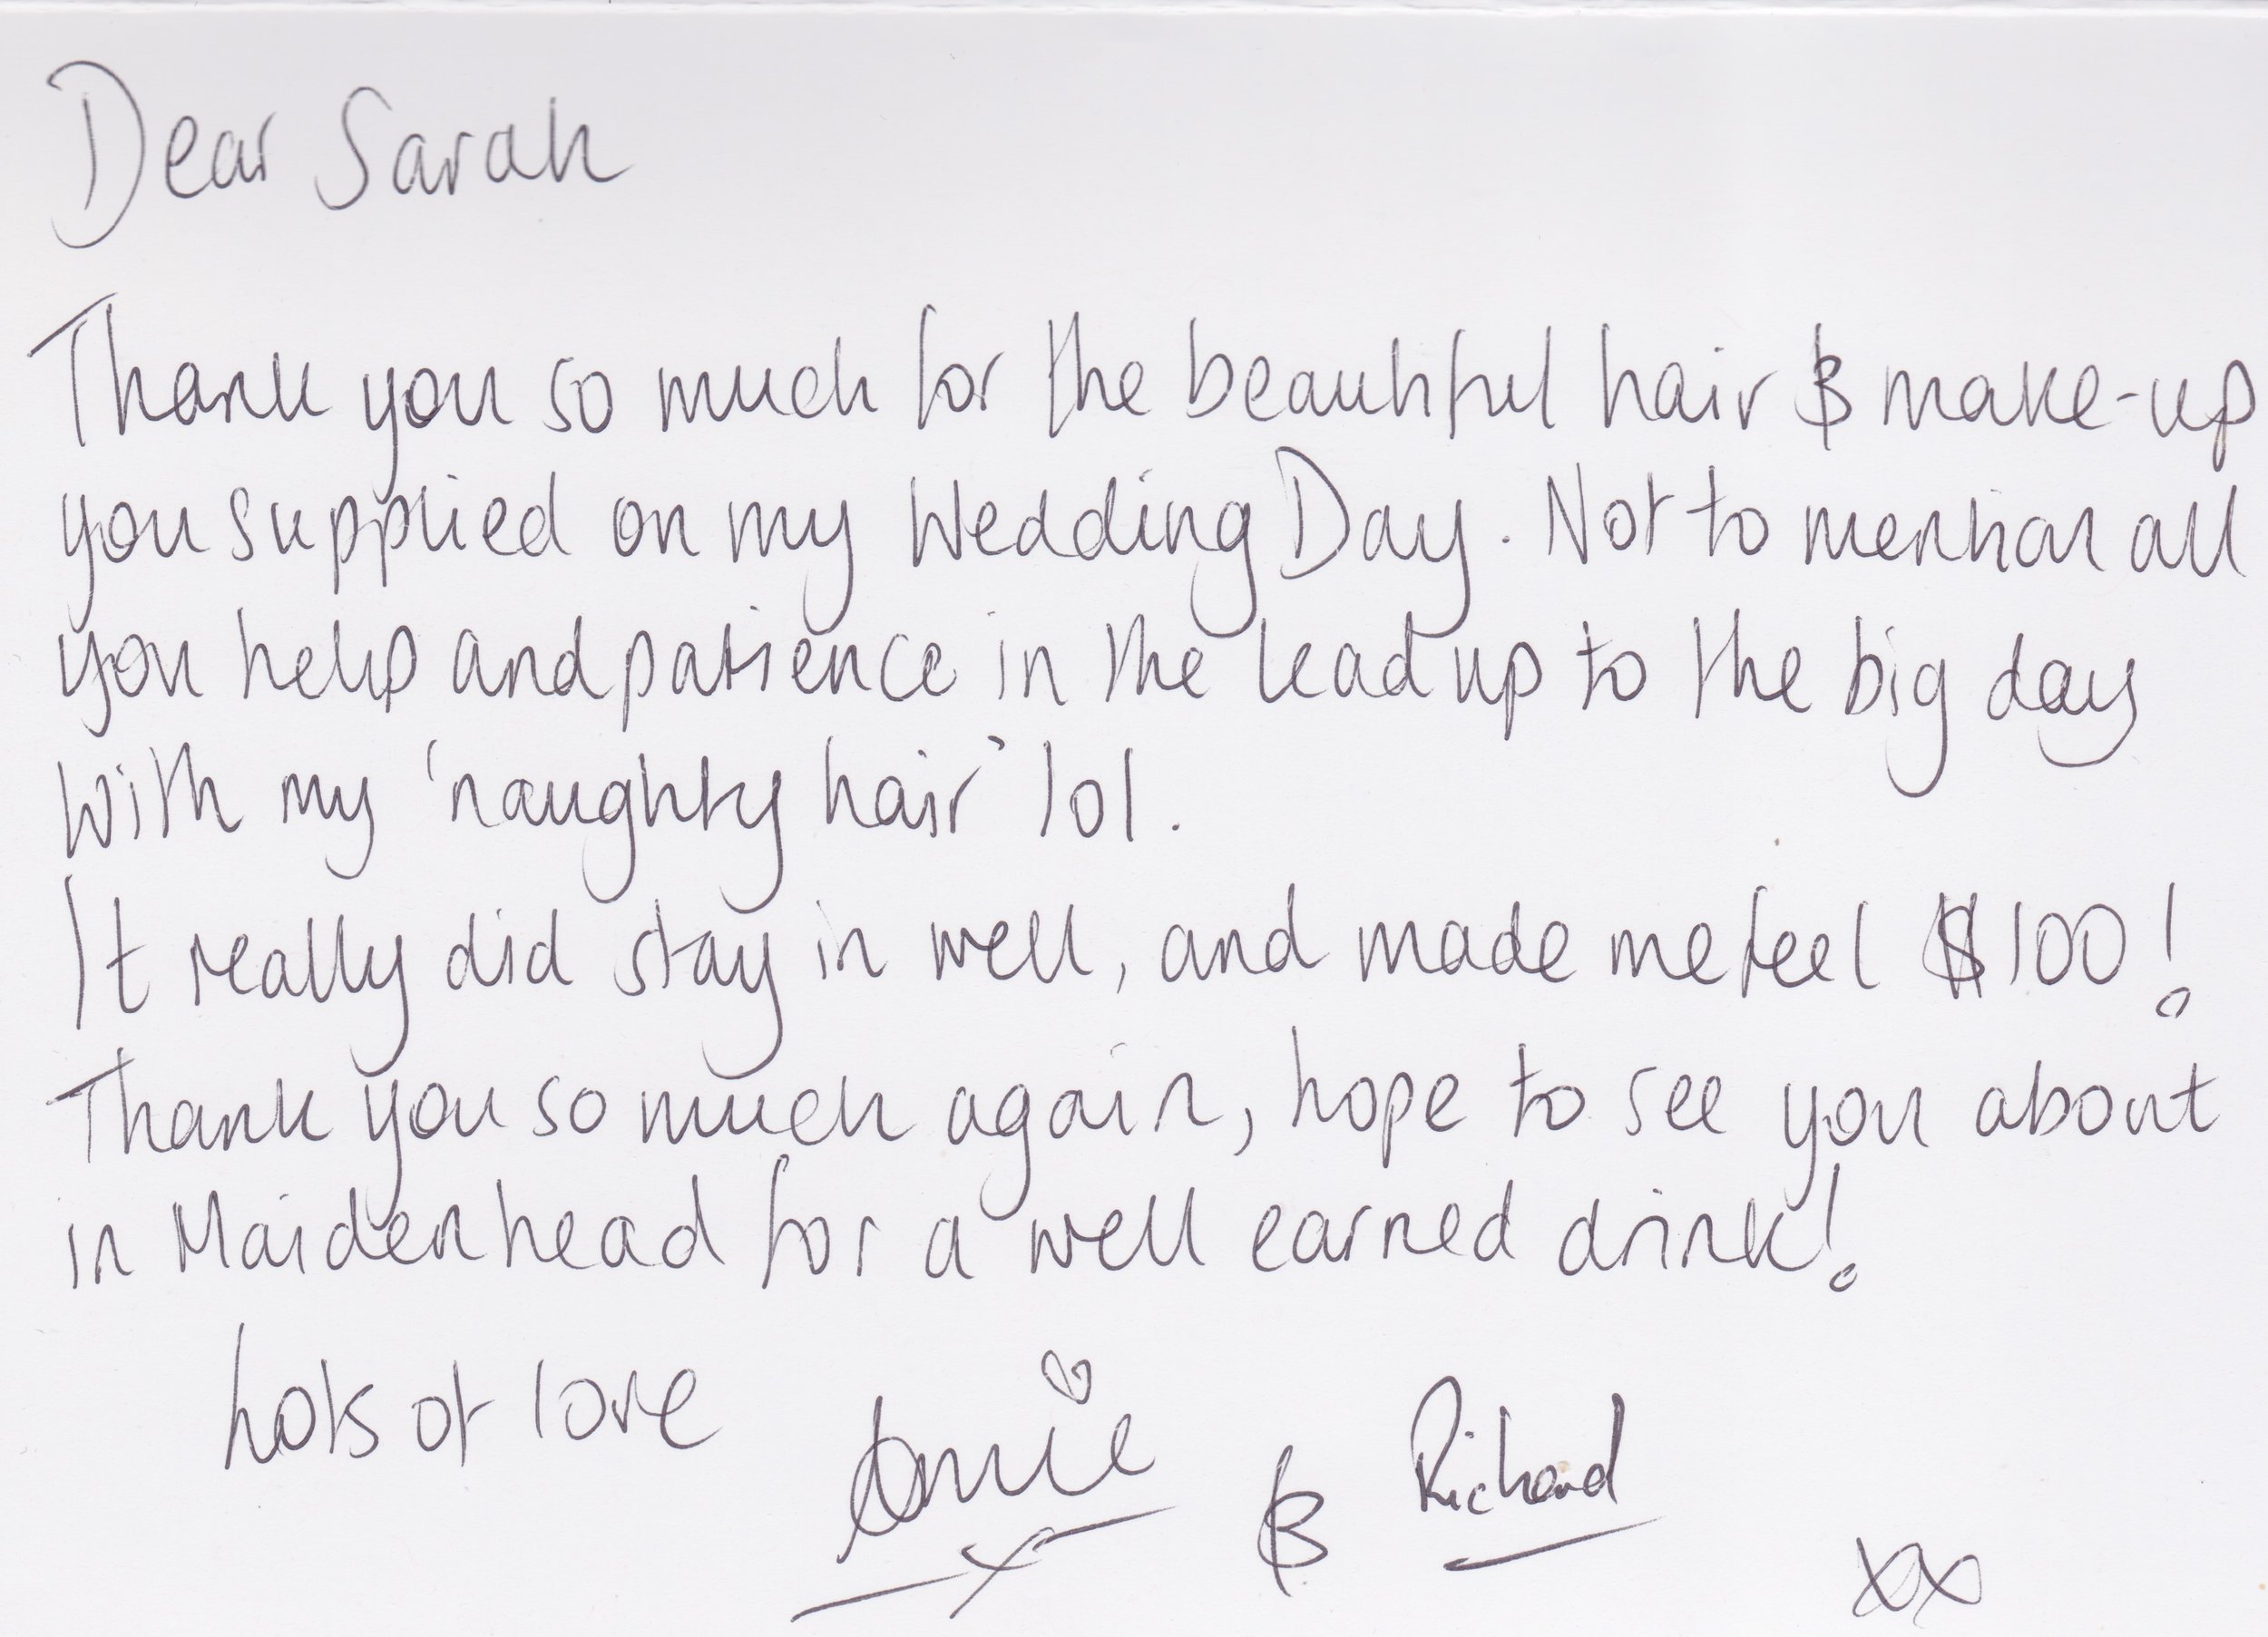 Dear Sarah
Thank you so much for the beautiful hair & make-up
you supplied on my Wedding Day. Not to mention all
you help and patience in the lead up to the big day
with my 'naughty hair' lol.
It really did stay in well, and made me feel $100!
Thank you so much again, hope to see you about
in Maidenhead for a well earned drink!
Lots of love Amie & Richard xx